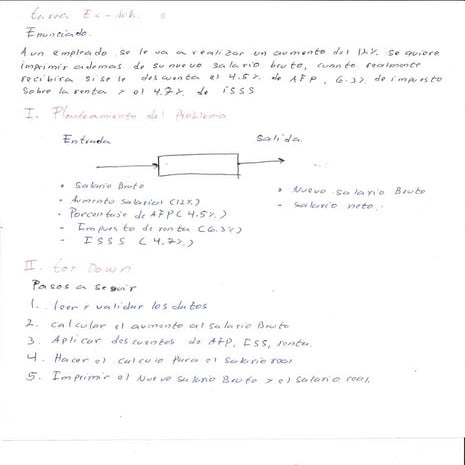 tarea Ex-
Enunciado.
A un empleado se le va a realizar un aumento del 12% se quiere
imprimir ademas de su nuevo salario bruto, cuanto realmente
recibira si se le descuenta el 4.5% de AFP, 6.3% de impuesto
sobre la renta y el 4.7% de ISSS
I. Planteamiento del Problema
Entrada
Salida
• Salario Bruto
• Aumento salarial (12%)
- Porcentaje de AFP (4.5%)
- Impuesto de renta (6.3%)
- ISSS (4.7%)
• Nuevo salario Bruto
- salario neto.
II. top Down
Pasos a seguir
1. leer y validar los datos
2. calcular el aumento al salario Bruto
3. Aplicar descuentos de AFP, ISS, renta.
4. Hacer el calculo para el salario real
5. Imprimir el Nuevo salario Bruto y el salario real.